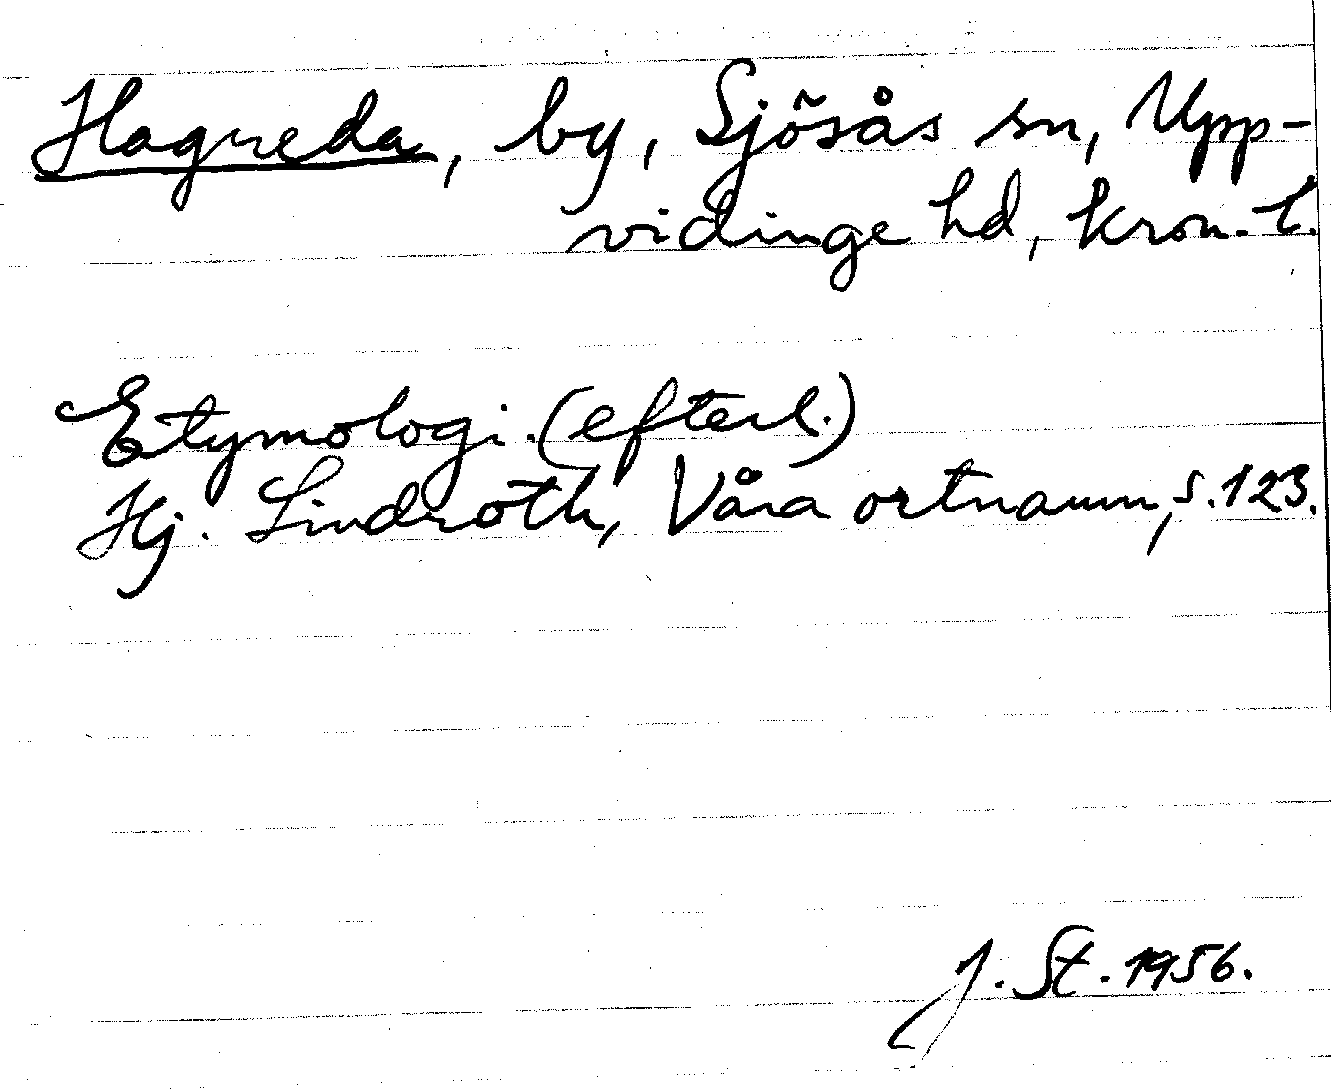 Hagreda, by, Sjösås sn, Upp-
vidinge hd, kron. l.
Etymologi. (efterl.)
Hj. Lindroth, Våra ortnamn, s. 123.
J. St. 1956.